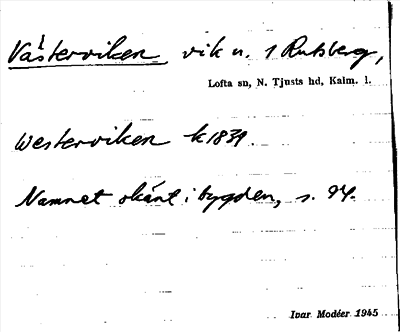 Västerviken vik n. 1 Rutsberg,
Lofta sn, N. Tjusts hd, Kalm. l.
Westerviken k 1839.
Namnet okänt i bygden, s. 94.
Ivar Modéer 1945